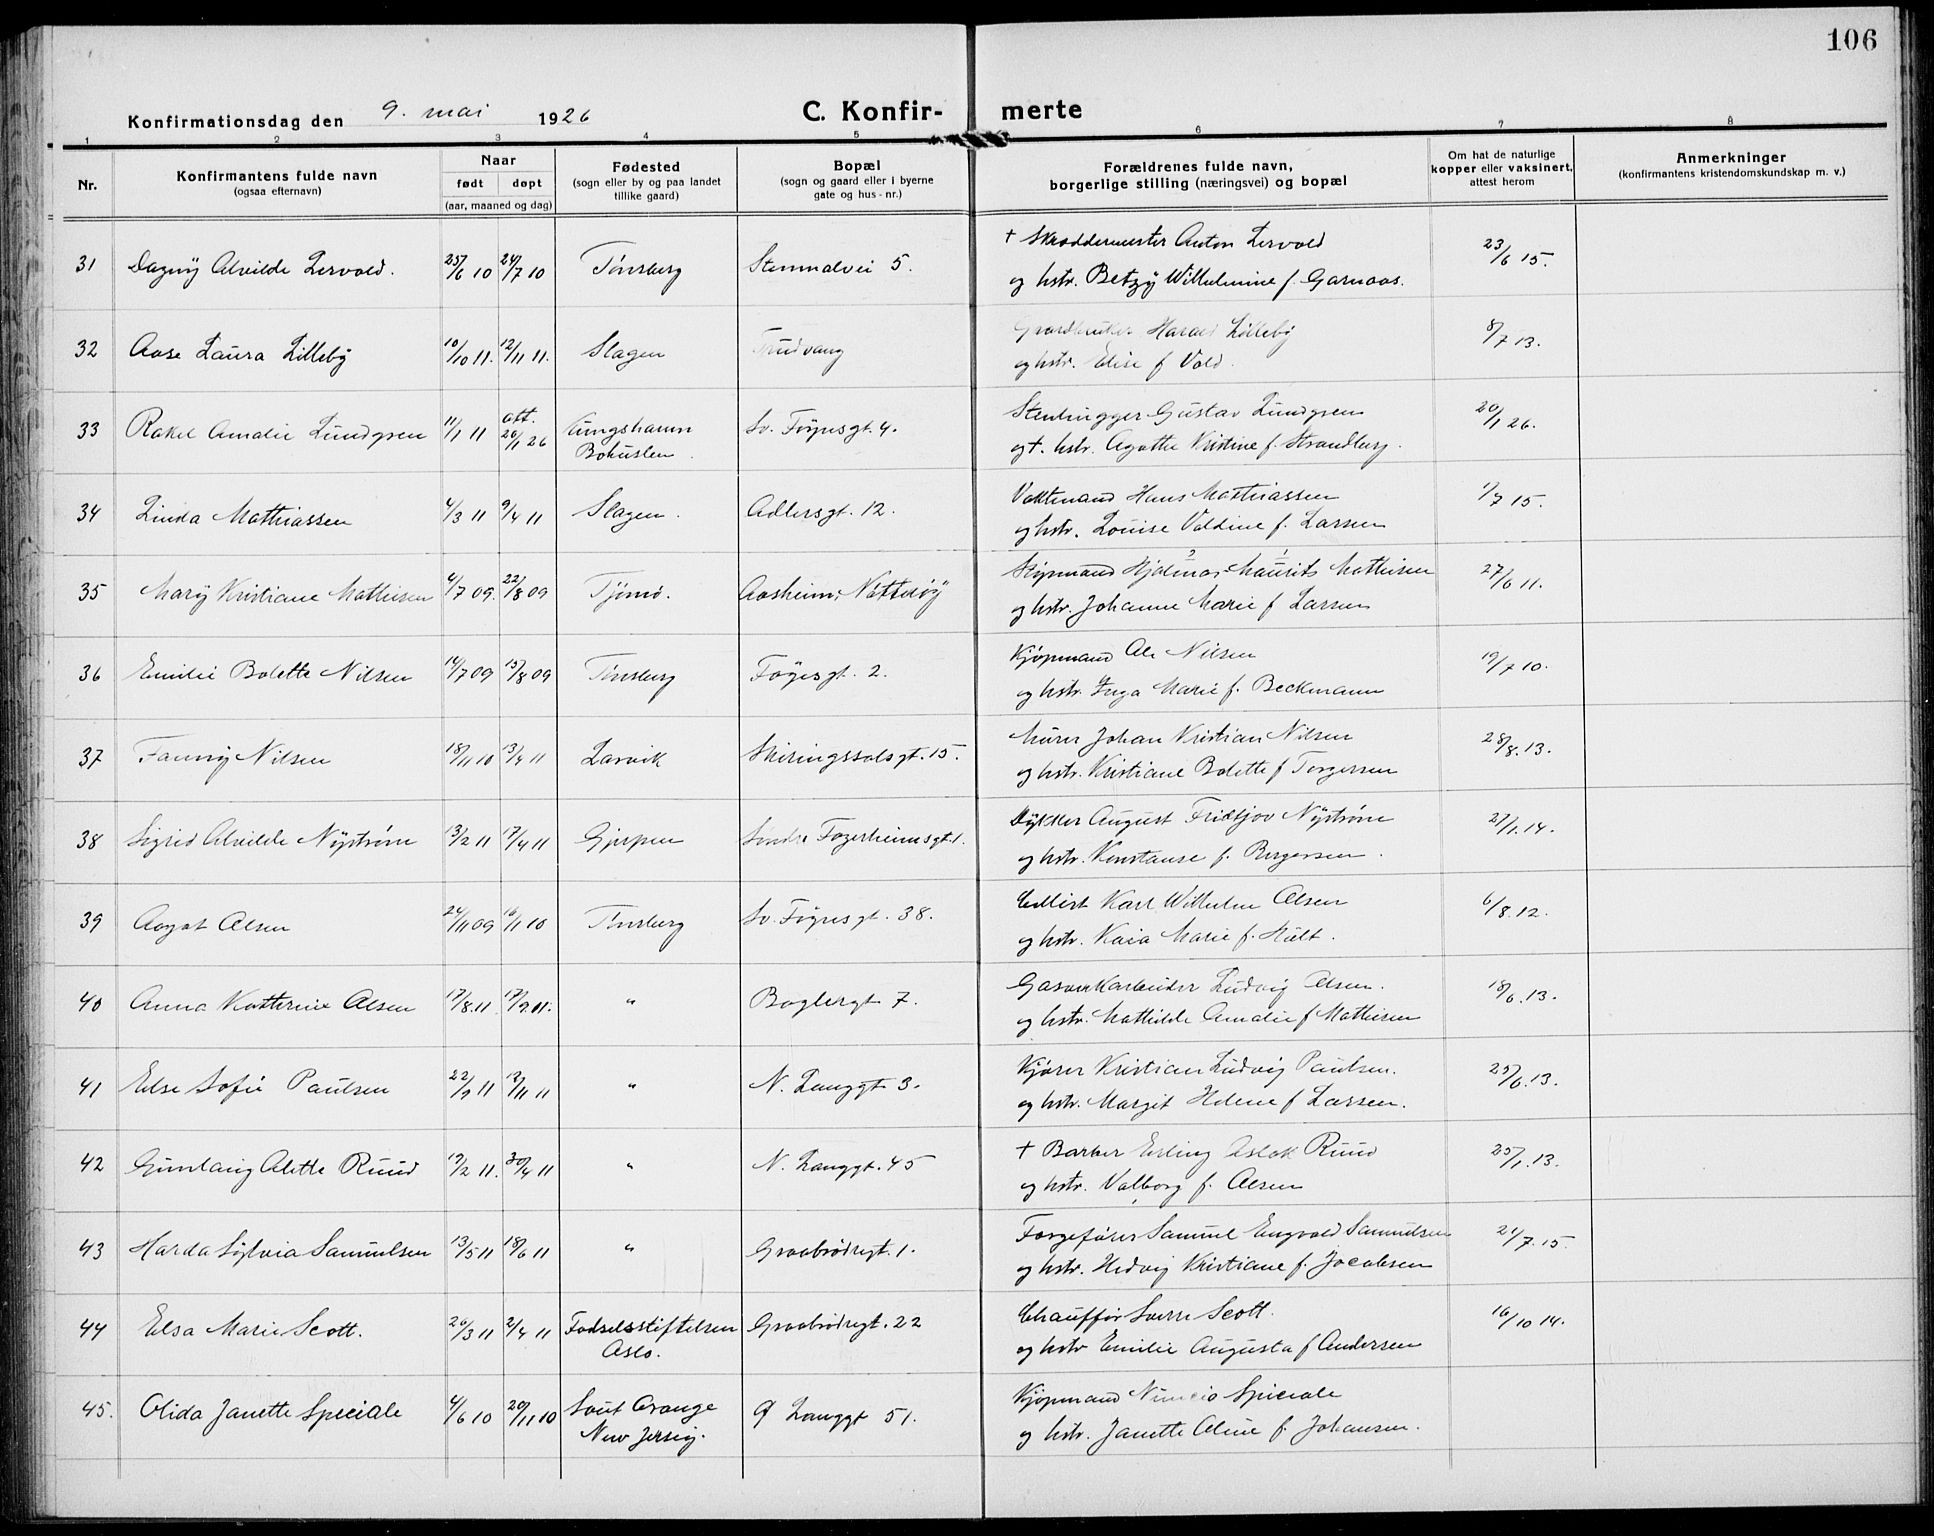 106
Konfirmationsdag den 9. mai 1926 C. Konfir- merte
1 2 3 4 5 6 7 8
Nr. Konfirmantens fulde navn (ogsaa efternavn) Naar født døpt (aar, maaned og dag) Fødested (sogn eller by og paa landet tillike gaard) Bopæl (sogn og gaard eller i byerne gate og hus-nr.) Forældrenes fulde navn, borgerlige stilling (næringsvei) og bopæl Om hat de naturlige kopper eller vaksinert, attest herom Anmerkninger (konfirmantens kristendomskundskap m. v.)
31 Dagny Alvilde Lervold. 25/6 10 24/7 10 Tønsberg Stenmalvei 5. † Skræddermester Anton Lervold 23/6 15.
og hstr. Betzy Wilhelmine f. Garnaas.
32 Aase Laura Lilleby 10/10 11. 12/11 11. Slagen Trudvang Gaardbruker Harald Lilleby 8/7 13.
og hstr. Elise f Vold.
33 Rakel Amalie Lundgren 11/1 11 att. 20/1 26 Kungshamn Bohuslen. Sv. Føynsgt. 4. Stenhugger Gustav Lundgren 20/1 26.
og †. hstr. Agathe Kristine f. Strandberg.
34 Linda Mathiassen 4/3 11 9/4 11 Slagen. Adlersgt. 12. Vaktmand Hans Mathiassen 1/7 15.
og hstr. Louise Valdine f. Larsen
35 Mary Kristiane Mathisen 4/7 09. 22/8 09 Tjømø. Aasheim, Nøtterøy Skipmand Hjalmar Maurits Mathisen 27/6 11.
og hstr. Johanne Marie f Larsen
36 Emilie Bolette Nilsen 14/7 09 15/8 09 Tønsberg Føynsgt. 2. Kjøpmand Ole Nilsen 19/7 10.
og hstr. Inga Marie f. Beckmann
37 Fanny Nilsen 18/11 10 13/4 11 Larvik Skiringssalsgt. 15. Murer Johan Kristian Nilsen 28/8. 13.
og hstr. Kristiane Bolette f Torgersen
38 Sigrid Alvilde Nystrøm 13/2 11 17/4 11 Gjerpen Søndre Fagerheimsgt. 1. Dykker August Fridtjov Nystrøm 27/1. 14.
og hstr. Konstanse f. Bergersen.
39 Aagot Olsen 24/11 09 16/1 10 Tønsberg Sv. Føynsgt. 38. Cellist Karl Wilhelm Olsen 6/8. 12.
og hstr. Kaia Marie f. Hult.
40 Anna Katherine Olsen 17/8. 11 17/9. 11. " Baglergt 7. Gasverkarbeider Ludvig Olsen. 18/6. 13.
og hstr. Mathilde Amalie f Mathisen
41 Else Sofie Paulsen 22/9 11 12/11 11 " N. Langgt. 3. Kjører Kristian Ludvig Paulsen. 25/6. 13.
og hstr. Margit Helene f Larsen.
42 Gunlaug Alette Ruud 19/2 11. 30/4 11 " N. Langgt. 45 † Barber Erling Aslak Ruud 25/1. 13.
og hstr. Valborg f. Olsen
43 Harda Sylvia Samuelsen 13/5 11 18/6 11 " Graabrødregt. 1. Færgefører Samuel Engvald Samuelsen 21/7. 15.
og hstr. Hedvig Kristiane f. Jacobsen
44 Elsa Marie Scott. 20/3 11 2/4 11 Fødselsstiftelsen Oslo. Graabrødregt. 22 Chauffør Sverre Scott. 16/10 14.
og hstr Emilie Augusta f Andersen
45. Olida Janette Speciale 4/6 10 20/11 10 Sout Orange New Jersey. Ø Langgt 51. Kjøpmand Nuncio Speciale
og hstr. Janette Oline f. Johansen.